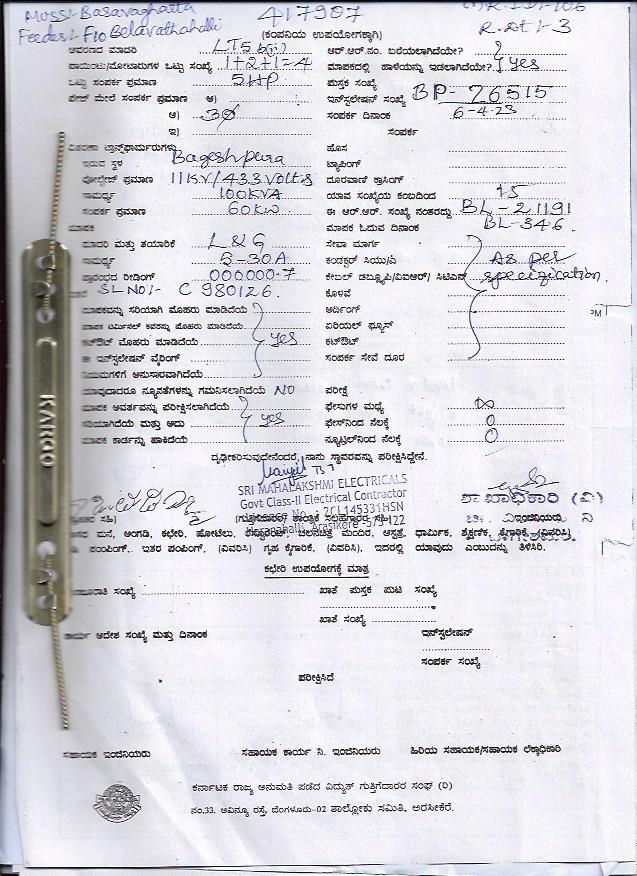 Muss:- Basavaghatta
417907
Feeder:- F10 Belavathahalli
R.Dt:- 3
(ಕಂಪನಿಯ ಉಪಯೋಗಕ್ಕಾಗಿ)
ಆವರಣದ ಮಾದರಿ LT5 b(ii) ಆರ್.ಆರ್.ನಂ. ಬರೆಯಲಾಗಿದೆಯೇ?
ಪಾಯಿಂಟು/ಮೋಟಾರುಗಳ ಒಟ್ಟು ಸಂಖ್ಯೆ 1+2+1=4 ಮಾಪಕದಲ್ಲಿ ಹಾಳೆಯನ್ನು ಇಡಲಾಗಿದೆಯೇ? yes
ಒಟ್ಟು ಸಂಪರ್ಕ ಪ್ರಮಾಣ 5HP ಪುಸ್ತಕ ಸಂಖ್ಯೆ
ಪೇಸ್ ಮೇಲೆ ಸಂಪರ್ಕ ಪ್ರಮಾಣ ಅ) ಇನ್‌ಸ್ಟಲೇಷನ್ ಸಂಖ್ಯೆ BP- 26515
ಆ) 3Ø ಸಂಪರ್ಕ ದಿನಾಂಕ 6-4-23
ಇ) ಸಂಪರ್ಕ
ವಿತರಣಾ ಟ್ರಾನ್ಸ್‌ಫಾರ್ಮರುಗಳು ಹೊಸ
ಇರುವ ಸ್ಥಳ Bageshpura ಟ್ಯಾಪಿಂಗ್
ವೋಲ್ಟೇಜ್ ಪ್ರಮಾಣ 11KV/433 Volts ದೂರವಾಣಿ ಕ್ರಾಸಿಂಗ್
ಸಾಮರ್ಥ್ಯ 100KVA ಯಾವ ಸಂಖ್ಯೆಯ ಕಂಬದಿಂದ 15
ಸಂಪರ್ಕ ಪ್ರಮಾಣ 60KW ಈ ಆರ್.ಆರ್. ಸಂಖ್ಯೆ ನಂತರದ್ದು BL - 21191
ಮಾಪಕ ಮಾಪಕ ಓದುವ ದಿನಾಂಕ BL-346.
ಮಾದರಿ ಮತ್ತು ತಯಾರಿಕೆ L&G ಸೇವಾ ಮಾರ್ಗ
ಸಾಮರ್ಥ್ಯ 5-30A ಕಂಡಕ್ಟರ್ ಸಿಯು/ಎ As per
ಪ್ರಾರಂಭದ ರೀಡಿಂಗ್ 000000-7 ಕೇಬಲ್ ಡಬ್ಲ್ಯೂಪಿ/ವಿಐಆರ್/ ಸಿಟಿಎಸ್ specification.
SL NO:- C 980126. ಕೊಳವೆ
ಮಾಪಕವನ್ನು ಸರಿಯಾಗಿ ಮೊಹರು ಮಾಡಿದೆಯೆ ಅರ್ದಿಂಗ್
ಮಾಪಕ ಟರ್ಮಿನಲ್ ಕವರನ್ನು ಮೊಹರು ಮಾಡಿದೆಯೆ ಏರಿಯಲ್ ಫ್ಯೂಸ್
ಕಟ್‌ಔಟ್ ಮೊಹರು ಮಾಡಿದೆಯೆ yes ಕಟ್‌ಔಟ್
ಈ ಇನ್‌ಸ್ಟಲೇಷನ್ ವೈರಿಂಗ್ ಸಂಪರ್ಕ ಸೇವೆ ದೂರ
ನಿಯಮಗಳಿಗೆ ಅನುಸಾರವಾಗಿದೆಯೆ
ಯಾವುದಾದರೂ ನ್ಯೂನತೆಗಳನ್ನು ಗಮನಿಸಲಾಗಿದೆಯೆ NO ಪರೀಕ್ಷೆ
ಮಾಪಕ ಆವರ್ತವನ್ನು ಪರೀಕ್ಷಿಸಲಾಗಿದೆಯೆ ಫೇಸುಗಳ ಮಧ್ಯೆ ∞
ಸರಿಯಾಗಿದೆಯೆ ಮತ್ತು ಅದು yes ಫೇಸ್‌ನಿಂದ ನೆಲಕ್ಕೆ 0
ಮಾಪಕ ಕಾರ್ಡನ್ನು ಹಾಕಿದೆಯೆ ನ್ಯೂಟ್ರಲ್‌ನಿಂದ ನೆಲಕ್ಕೆ 0
ದೃಢೀಕರಿಸುವುದೇನೆಂದರೆ, ನಾನು ಸ್ಥಾವರವನ್ನು ಪರೀಕ್ಷಿಸಿದ್ದೇನೆ.
SRI MAHALAKSHMI ELECTRICALS
Govt Class-II Electrical Contractor
Licence No : 2CL145331HSN
Arasikere - 573 122
ಶಾಖಾಧಿಕಾರಿ (ವಿ)
ಮನೆ, ಅಂಗಡಿ, ಕಛೇರಿ, ಹೋಟೆಲು, ರೆಸ್ಟೋರೆಂಟ್, ಚಲನಚಿತ್ರ ಮಂದಿರ, ಆಸ್ಪತ್ರೆ, ಧಾರ್ಮಿಕ, ಶೈಕ್ಷಣಿಕ, ಕೈಗಾರಿಕೆ, (ವಿವರಿಸಿ)
ಪಂಪಿಂಗ್, ಇತರ ಪಂಪಿಂಗ್, (ವಿವರಿಸಿ) ಗೃಹ ಕೈಗಾರಿಕೆ, (ವಿವರಿಸಿ), ಇದರಲ್ಲಿ ಯಾವುದು ಎಂಬುದನ್ನು ತಿಳಿಸಿರಿ.
ಕಛೇರಿ ಉಪಯೋಗಕ್ಕೆ ಮಾತ್ರ
ಸಂಖ್ಯೆ ಖಾತೆ ಪುಸ್ತಕ ಪುಟ ಸಂಖ್ಯೆ
ಖಾತೆ ಸಂಖ್ಯೆ
ಕಾರ್ಯ ಆದೇಶ ಸಂಖ್ಯೆ ಮತ್ತು ದಿನಾಂಕ ಇನ್‌ಸ್ಟಲೇಷನ್
ಸಂಪರ್ಕ ಸಂಖ್ಯೆ
ಪರೀಕ್ಷಿಸಿದೆ
ಸಹಾಯಕ ಇಂಜಿನಿಯರು ಸಹಾಯಕ ಕಾರ್ಯ ನಿ. ಇಂಜಿನಿಯರು ಹಿರಿಯ ಸಹಾಯಕ/ಸಹಾಯಕ ಲೆಕ್ಕಾಧಿಕಾರಿ
ಕರ್ನಾಟಕ ರಾಜ್ಯ ಅನುಮತಿ ಪಡೆದ ವಿದ್ಯುತ್ ಗುತ್ತಿಗೆದಾರರ ಸಂಘ (ರಿ)
ನಂ.33, ಅವಿನ್ಯೂ ರಸ್ತೆ, ಬೆಂಗಳೂರು-02 ತಾಲ್ಲೋಕು ಸಮಿತಿ, ಅರಸೀಕೆರೆ.
KANGO
PM